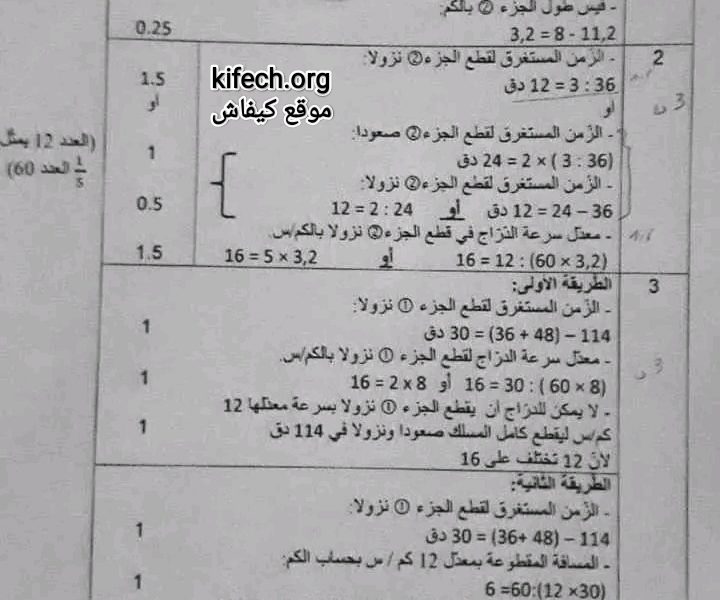 - قيس طول الجزء ② بالكم:
11,2 - 8 = 3,2
0.25
2
- الزّمن المستغرق لقطع الجزء② نزولا:
36 : 3 = 12 دق
1.5
أو
أو
- الزّمن المستغرق لقطع الجزء② صعودا:
(36 : 3 ) × 2 = 24 دق
1
- الزّمن المستغرق لقطع الجزء② نزولا:
36 – 24 = 12 دق أو 24 : 2 = 12
0.5
- معدّل سرعة الدّرّاج في قطع الجزء② نزولا بالكم/س.
(3,2 × 60) : 12 = 16 أو 3,2 × 5 = 16
1.5
(العدد 12 يمثّل
1/5 العدد 60)
kifech.org
موقع كيفاش
3 ن
3
الطريقة الأولى:
- الزّمن المستغرق لقطع الجزء ① نزولا:
114 – (48 + 36) = 30 دق
1
- معدّل سرعة الدرّاج لقطع الجزء ① نزولا بالكم/س.
(8 × 60 ) : 30 = 16 أو 8 x 2 = 16
1
- لا يمكن للدرّاج أن يقطع الجزء ① نزولا بسرعة معدّلها 12
كم/س ليقطع كامل المسلك صعودا ونزولا في 114 دق
1
لأنّ 12 تختلف على 16
3 ن
الطريقة الثانية:
- الزّمن المستغرق لقطع الجزء ① نزولا:
114 – (48 +36) = 30 دق
1
- المسافة المقطوعة بمعدّل 12 كم / س بحساب الكم:
(30× 12):60= 6
1